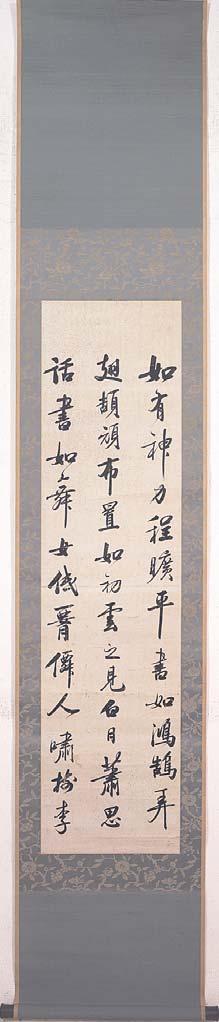 如有神力程曠平書如鴻鵠弄
翅頡頏布置如初雲之見白日蕭思
話書如舞女低腰僊人嘯樹李